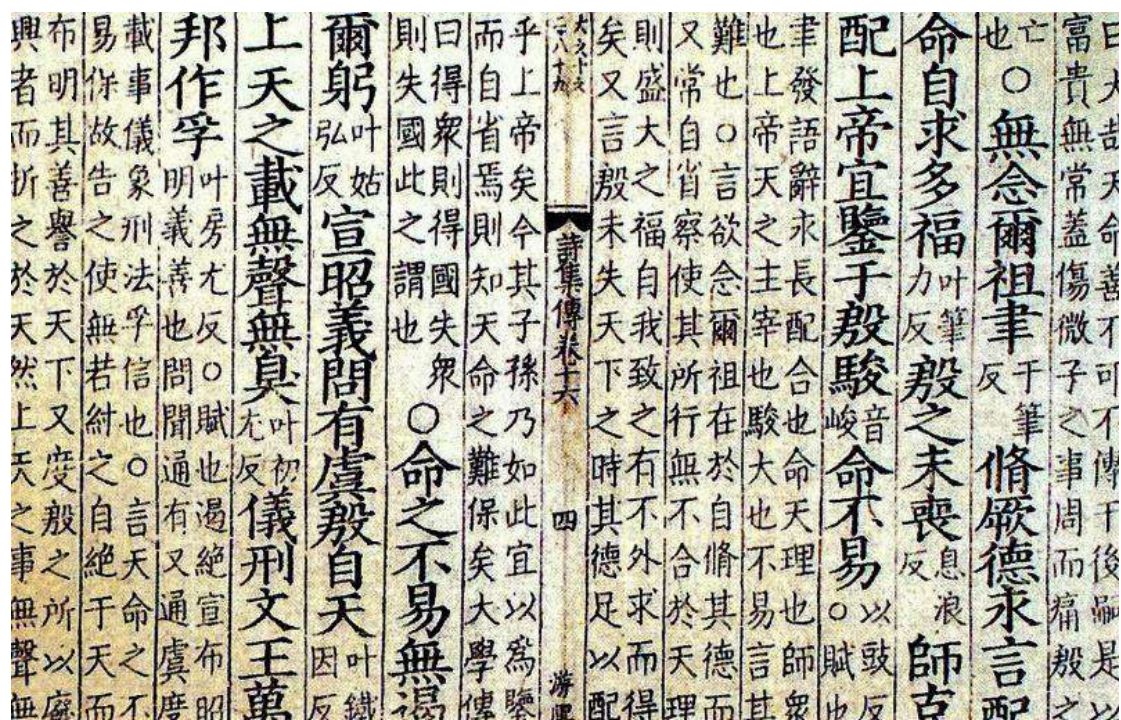 曰大哉天命善不可不傳于後嗣是以
富貴無常蓋傷微子之事周而痛殷之
亡也○無念爾祖聿于筆反脩厥德永言配
命自求多福叶筆力反殷之未喪息浪反師克
配上帝宜鑒于殷駿音峻命不易以豉反○賦也
聿發語辭永長配合也命天理也師衆
也上帝天之主宰也駿大也不易言其
難也○言欲念爾祖在於自脩其德而
又常自省察使其所行無不合於天理
則盛大之福自我致之有不外求而得
矣又言殷未失天下之時其德足以配
詩集傳卷十六 四
乎上帝矣今其子孫乃如此宜以爲鑒
而自省焉則知天命之難保矣大學傳
曰得衆則得國失衆則失國此之謂也○命之不易無遏
爾躬叶姑弘反宣昭義問有虞殷自天叶鐵因反
上天之載無聲無臭叶初尤反儀刑文王萬
邦作孚叶房尤反○賦也遏絕宣布昭
明義善也問聞通有又通虞度
載事儀象刑法孚信也○言天命之不
易保故告之使無若紂之自絕于天而
布明其善譽於天下又度殷之所以廢
興者而折之於天然上天之事無聲無